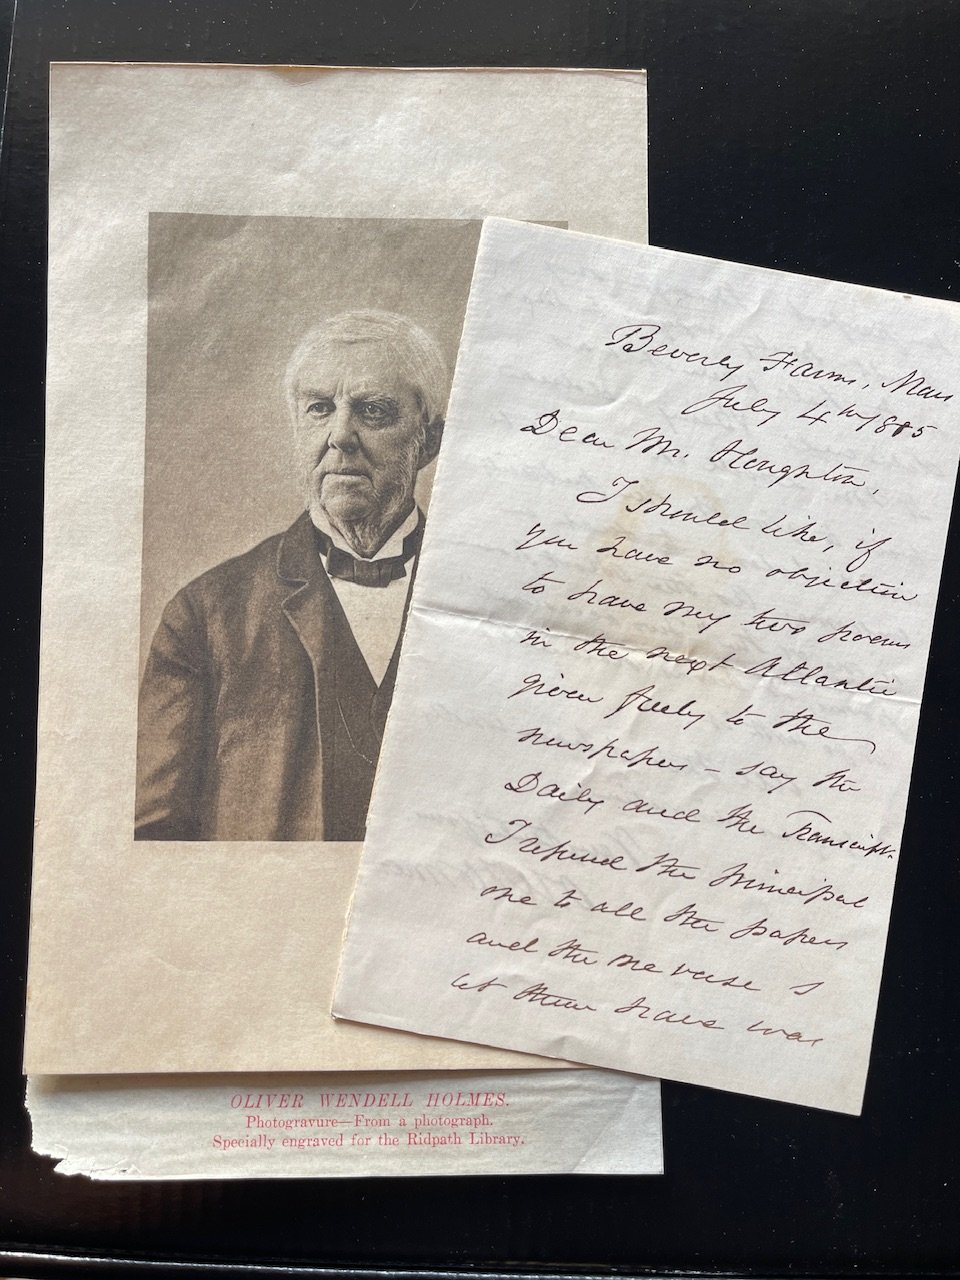 Beverly Farms, Mass
July 4th 1885
Dear Mr. Houghton,
I should like, if
you have no objection
to have my two poems
in the next Atlantic
given freely to the
newspapers – say the
Daily and the Transcript.
I refused the principal
one to all the papers
and the one verse I
let them have was
OLIVER WENDELL HOLMES.
Photogravure—From a photograph.
Specially engraved for the Ridpath Library.